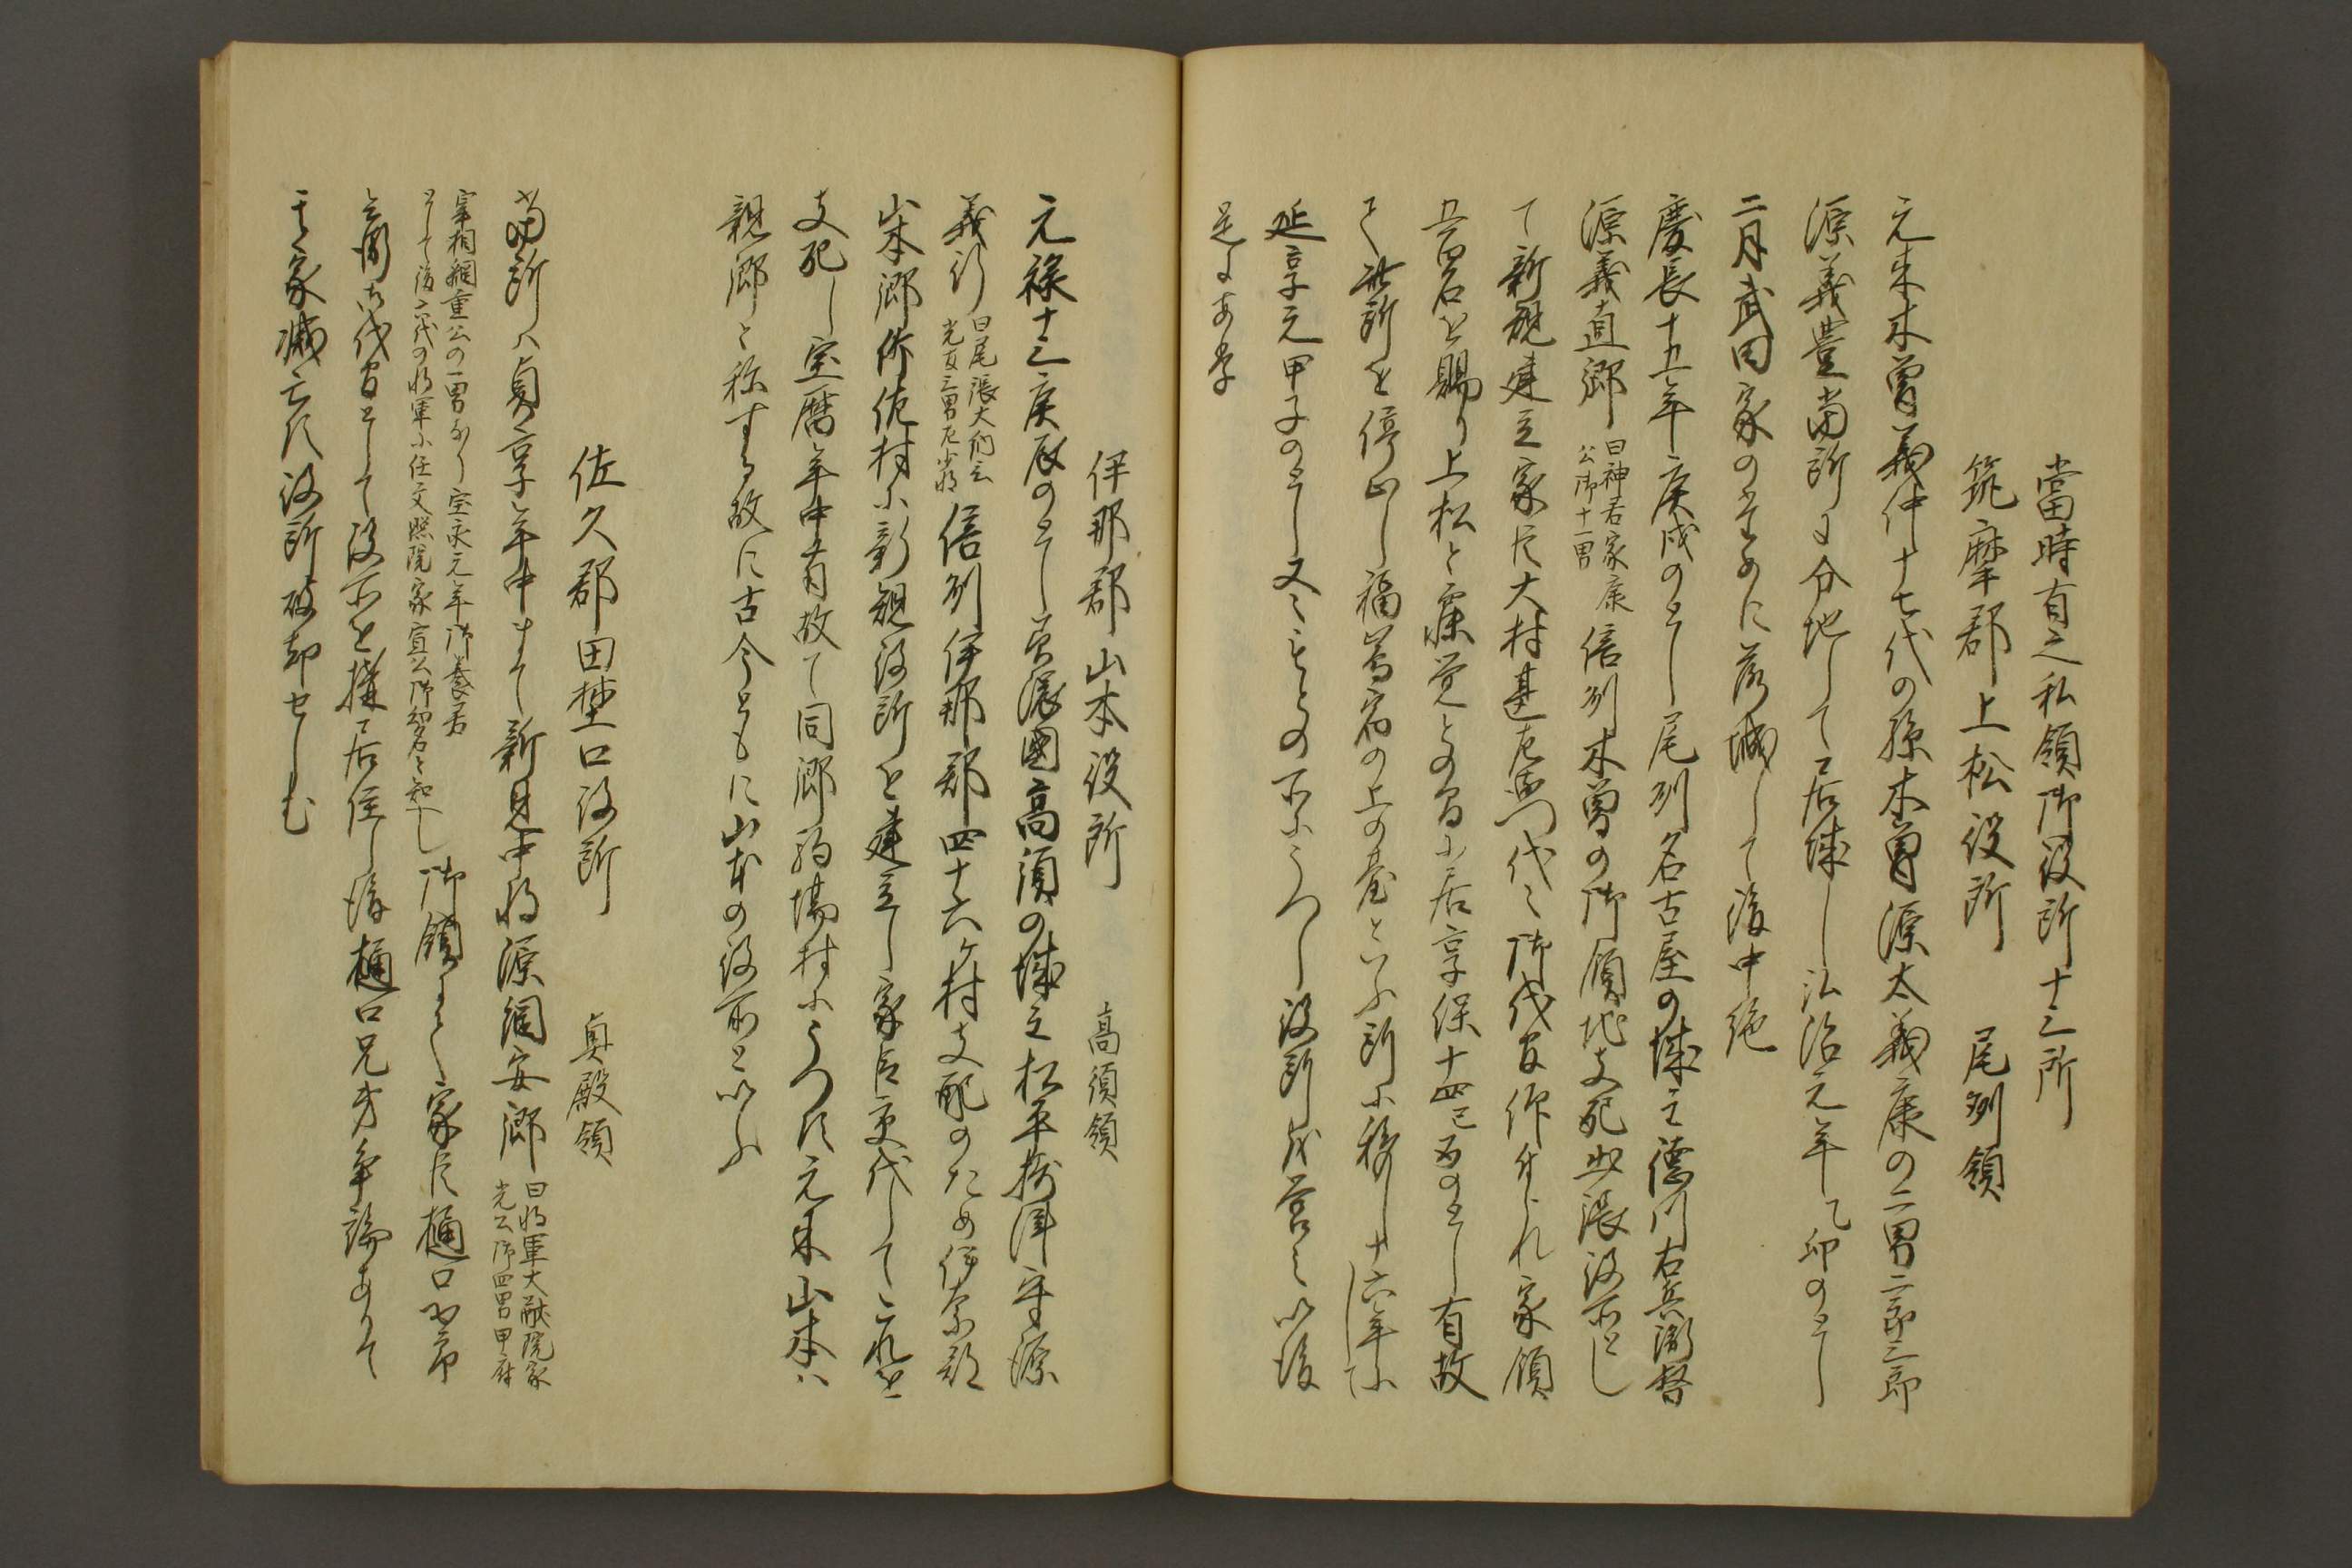 當時有之私領御役所十三所
筑摩郡上松役所　尾州領
元来木曽義仲十七代の孫木曽源太義康の二男二郎三郎
源義豊當所に分地して居城し弘治元年乙卯のとし
二月武田家のために落城して後中絶
慶長十五年庚戌のとし尾州名古屋の城主徳川右兵衛督
源義直郷
曰神君家康
公御十一男
信州木曽の御領地支配出張役所とし
て新規建立家臣大村甚左衛門代々御代官仰付られ家領
五百石を賜り上松と寐覚との間に居享保十四己酉のとし有故
て此所を停止し福嶌宿の上の臺といふ所に移し十六年に
延享元甲子のとし又々もとの所にうつし役所を営之以後
是にあり
伊那郡山本役所　高須領
元禄十三庚辰のとし美濃國高須の城主松平摂津守源
義行
曰尾張大納言
光友二男左少将
信州伊那郡四十六ヶ村支配のため伊奈郡
山本郷竹佐村に新規役所を建立し家臣交代してこれを
支配し宝暦年中有故て同郷的場村にうつす元来山本は
親郷と称する故に古今ともに山本の役所といふ
佐久郡田埜口役所　奥殿領
當所ハ貞享年中まて新見中将源綱安郷
曰将軍大猷院家
光公御四男甲府
宰相綱重公の一男なり宝永元年御養君
として後六代の将軍に任文照院家宣公御幼名と知へし
御領にて家臣樋口弥一郎
と御代官として役所を構居住し後樋口兄弟争論ありて
其家滅亡す役所破却せしむ